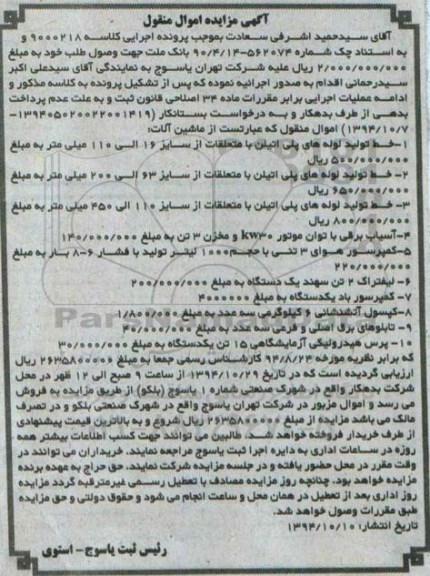 آگهی مزایده اموال منقول
آقای سیدحمید اشرفی سعادت بموجب پرونده اجرایی کلاسه ۹۰۰۰۲۱۸ و
به استناد چک شماره ۵۶۲۰۷۴-۹۰/۴/۱۴ بانک ملت جهت وصول طلب خود به مبلغ
۲/۰۰۰/۰۰۰/۰۰۰ ریال علیه شرکت تهران یاسوج به نمایندگی آقای سیدعلی اکبر
سیدرحمانی اقدام به صدور اجرائیه نموده که پس از تشکیل پرونده به کلاسه مذکور و
ادامه عملیات اجرایی برابر مقررات ماده ۳۴ اصلاحی قانون ثبت و به علت عدم پرداخت
بدهی از طرف بدهکار و به درخواست بستانکار (۱۳۹۴۰۵۰۲۰۰۲۲۰۰۱۴۱۹-
۱۳۹۴/۱۰/۷) اموال منقول که عبارتست از ماشین آلات:
۱-خط تولید لوله های پلی اتیلن با متعلقات از سایز ۱۶ الی ۱۱۰ میلی متر به مبلغ
۵۰۰/۰۰۰/۰۰۰ ریال
۲- خط تولید لوله های پلی اتیلن با متعلقات از سایز ۶۳ الی ۲۰۰ میلی متر به مبلغ
۶۵۰/۰۰۰/۰۰۰ ریال
۳- خط تولید لوله های پلی اتیلن با متعلقات از سایز ۱۱۰ الی ۴۵۰ میلی متر به مبلغ
۸۰۰/۰۰۰/۰۰۰ ریال
۴-آسیاب برقی با توان موتور kw۳۰ و مخزن ۳ تن به مبلغ ۱۴۰/۰۰۰/۰۰۰
۵-کمپرسور هوای ۳ تنی با حجم ۱۰۰۰ لیتر تولید با فشار ۶-۸ بار به مبلغ
۲۲۰/۰۰۰/۰۰۰
۶- لیفتراک ۲ تن سهند یک دستگاه به مبلغ ۲۰۰/۰۰۰/۰۰۰
۷- کمپرسور باد یکدستگاه به مبلغ ۴۰۰۰۰۰۰
۸-کپسول آتشنشانی ۶ کیلوگرمی سه عدد به مبلغ ۱/۸۰۰/۰۰۰
۹- تابلوهای برق اصلی و فرعی سه عدد به مبلغ
۱۰- پرس هیدرولیکی آزمایشگاهی ۱۵ تن یکدستگاه به مبلغ ۳۰/۰۰۰/۰۰۰
که برابر نظریه مورخه ۹۴/۸/۲۴ کارشناس رسمی جمعا به مبلغ ۲۶۳۵۸۰۰۰۰۰ ریال
ارزیابی گردیده است که در تاریخ ۱۳۹۴/۱۰/۲۹ از ساعت ۹ صبح الی ۱۲ ظهر در محل
شرکت بدهکار واقع در شهرک صنعتی شماره ۱ یاسوج (بلکو) از طریق مزایده به فروش
می رسد و اموال مزبور در شرکت تهران یاسوج واقع در شهرک صنعتی بلکو و در تصرف
مالک می باشد مزایده از مبلغ ۲۶۳۵۸۰۰۰۰۰ ریال شروع و به بالاترین قیمت پیشنهادی
از طرف خریدار فروخته خواهد شد. طالبین می توانند جهت کسب اطلاعات بیشتر همه
روزه در ساعات اداری به دایره اجرا ثبت یاسوج مراجعه نمایند. خریداران می توانند در
وقت مقرر در محل حضور یافته و در جلسه مزایده شرکت نمایند. حق حراج به عهده برنده
مزایده خواهد بود. چنانچه روز مزایده مصادف با تعطیل رسمی غیرمترقبه گردد مزایده
روز اداری بعد از تعطیل در همان محل و ساعت انجام می شود و حقوق دولتی و حق مزایده
طبق مقررات وصول خواهد شد.
تاریخ انتشار: ۱۳۹۴/۱۰/۱۰
رئیس ثبت یاسوج- استوی